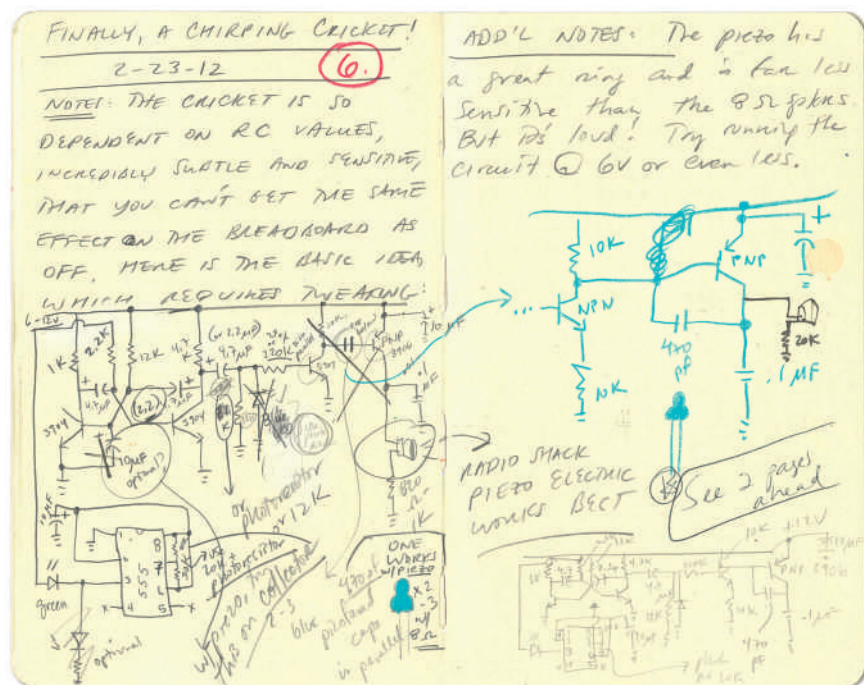 FINALLY, A CHIRPING CRICKET!
2-23-12
6.
NOTES: THE CRICKET IS SO
DEPENDENT ON RC VALUES,
INCREDIBLY SUBTLE AND SENSITIVE,
THAT YOU CAN'T GET THE SAME
EFFECT ON THE BREADBOARD AS
OFF. HERE IS THE BASIC IDEA,
WHICH REQUIRES TWEAKING:
6-12V
1K
2.2K
12K
4.7K
(or 2.2µF)
4.7µF
220K
PNP
3906
10µF
+
4.7µF
(2.2)
4.7µF
3904
3904
.1
µF
10µF
optional)
or
photoresistor
or 12K
820
Ω-
1K
10µF
555
1
2
3
4
8
7
6
5
X
X
20K+
photoresistor
green
optional
w/ piezo, try
collector
2-3
blue
470pf
caps
in parallel
ONE
WORKS
w/ PIEZO
x2
-3
w/
8Ω
ADD'L NOTES: The piezo has
a great ring and is far less
sensitive than the 8Ω spkrs.
But it's loud! Try running the
circuit @ 6V or even less.
10K
PNP
+
...
NPN
470
pf
20K
10K
.1µF
RADIO SHACK
PIEZO ELECTRIC
WORKS BEST
See 2 pages
ahead
10K
+12V
PNP 3906
470
pf